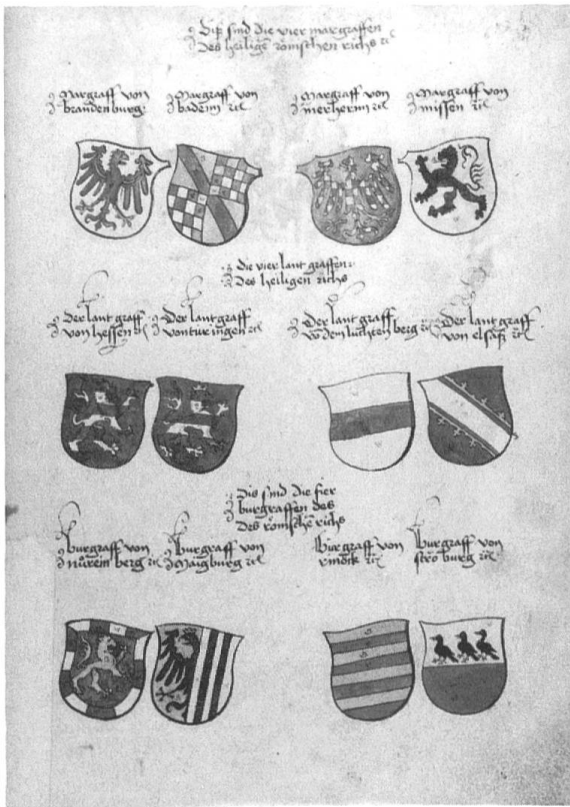 Diß sind die vier margraffen
des heilige römschen richs rc
Margraff von
brandenburg
Margraff von
badenn rc
Margraff von
merherrnn rc
Margraff von
missen rc
die vier lant graffen
des heiligen richs
Der lant graff
von hessen rc
Der lant graff
von türingen rc
Der lant graff
vo dem lüchten berg rc
Der lant graff
von elsaß rc
Dis sind die fier
burgraffen des
des römsche richs
burgraff von
nürem berg rc
burgraff von
Maigburg rc
Burgraff von
rineck rc
burgraff von
stro burg rc